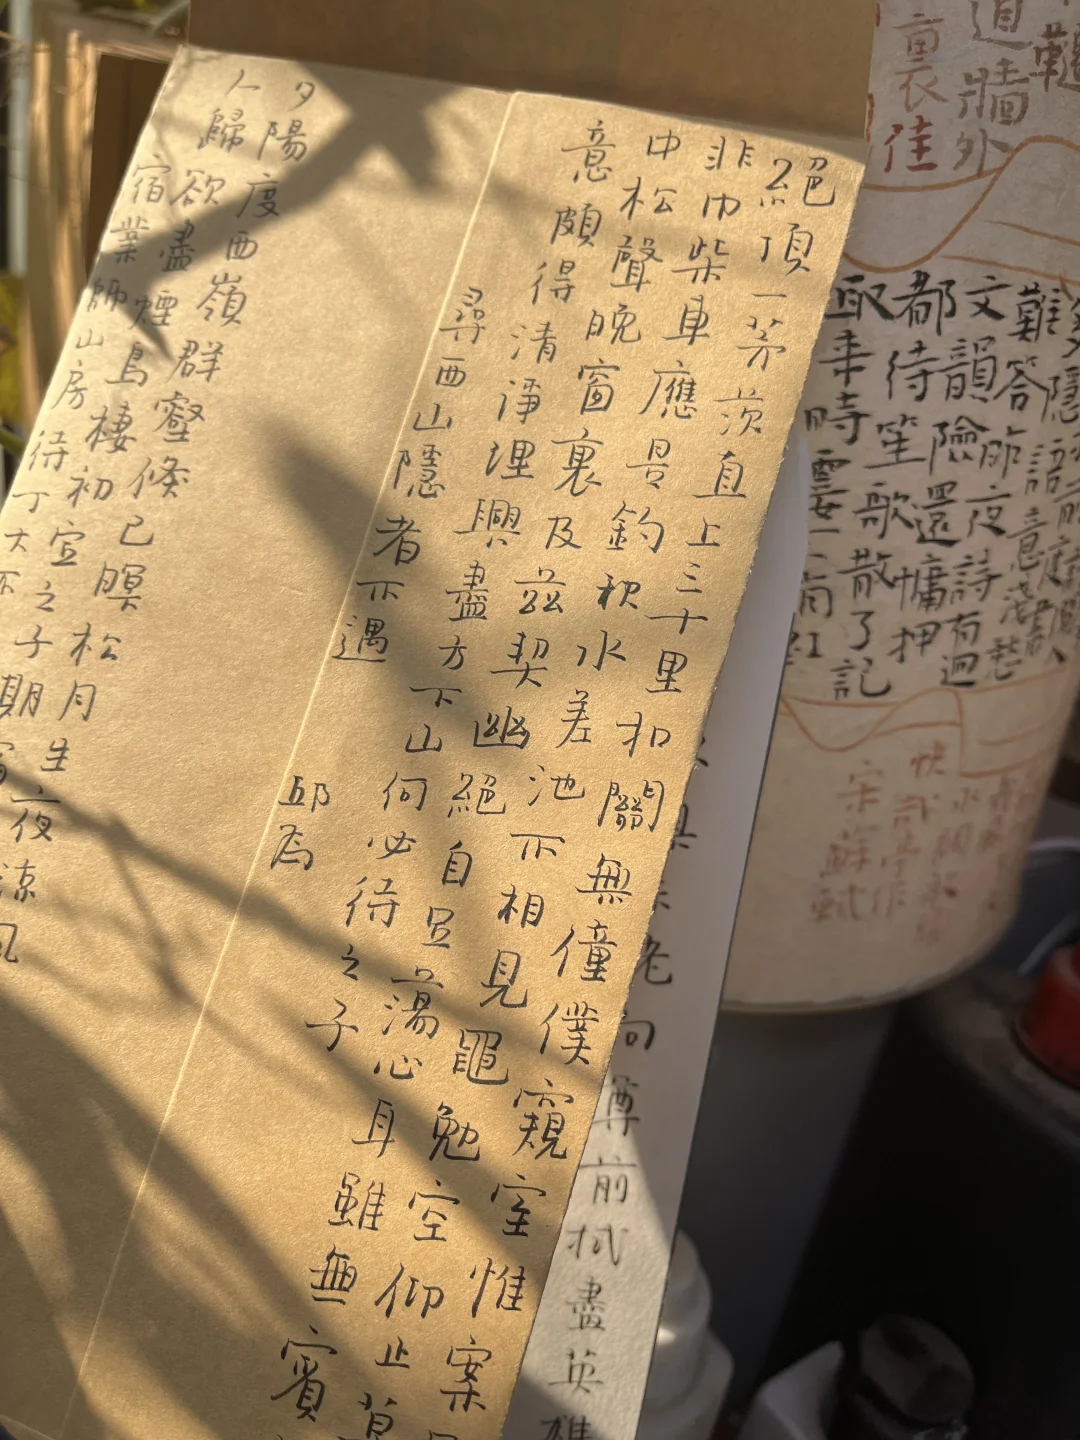 道牆外
裏佳
難答昨夜詩有迴
文韻險還慵押
都待笙歌散了記
取來時霎
宋蘇軾
老向尊前拭盡英雄
絕頂一茅茨直上三十里扣關無僮僕窺室惟案
非巾柴車應是釣秋水差池不相見黽勉空仰止草
中松聲晚窗裏及茲契幽絕自足蕩心耳雖無賓
意頗得清淨理興盡方下山何必待之子
尋西山隱者不遇
邱為
夕陽度西嶺群壑倏已暝松月生夜涼風
人歸欲盡煙鳥棲初定之子期宿
宿業師山房待丁大不